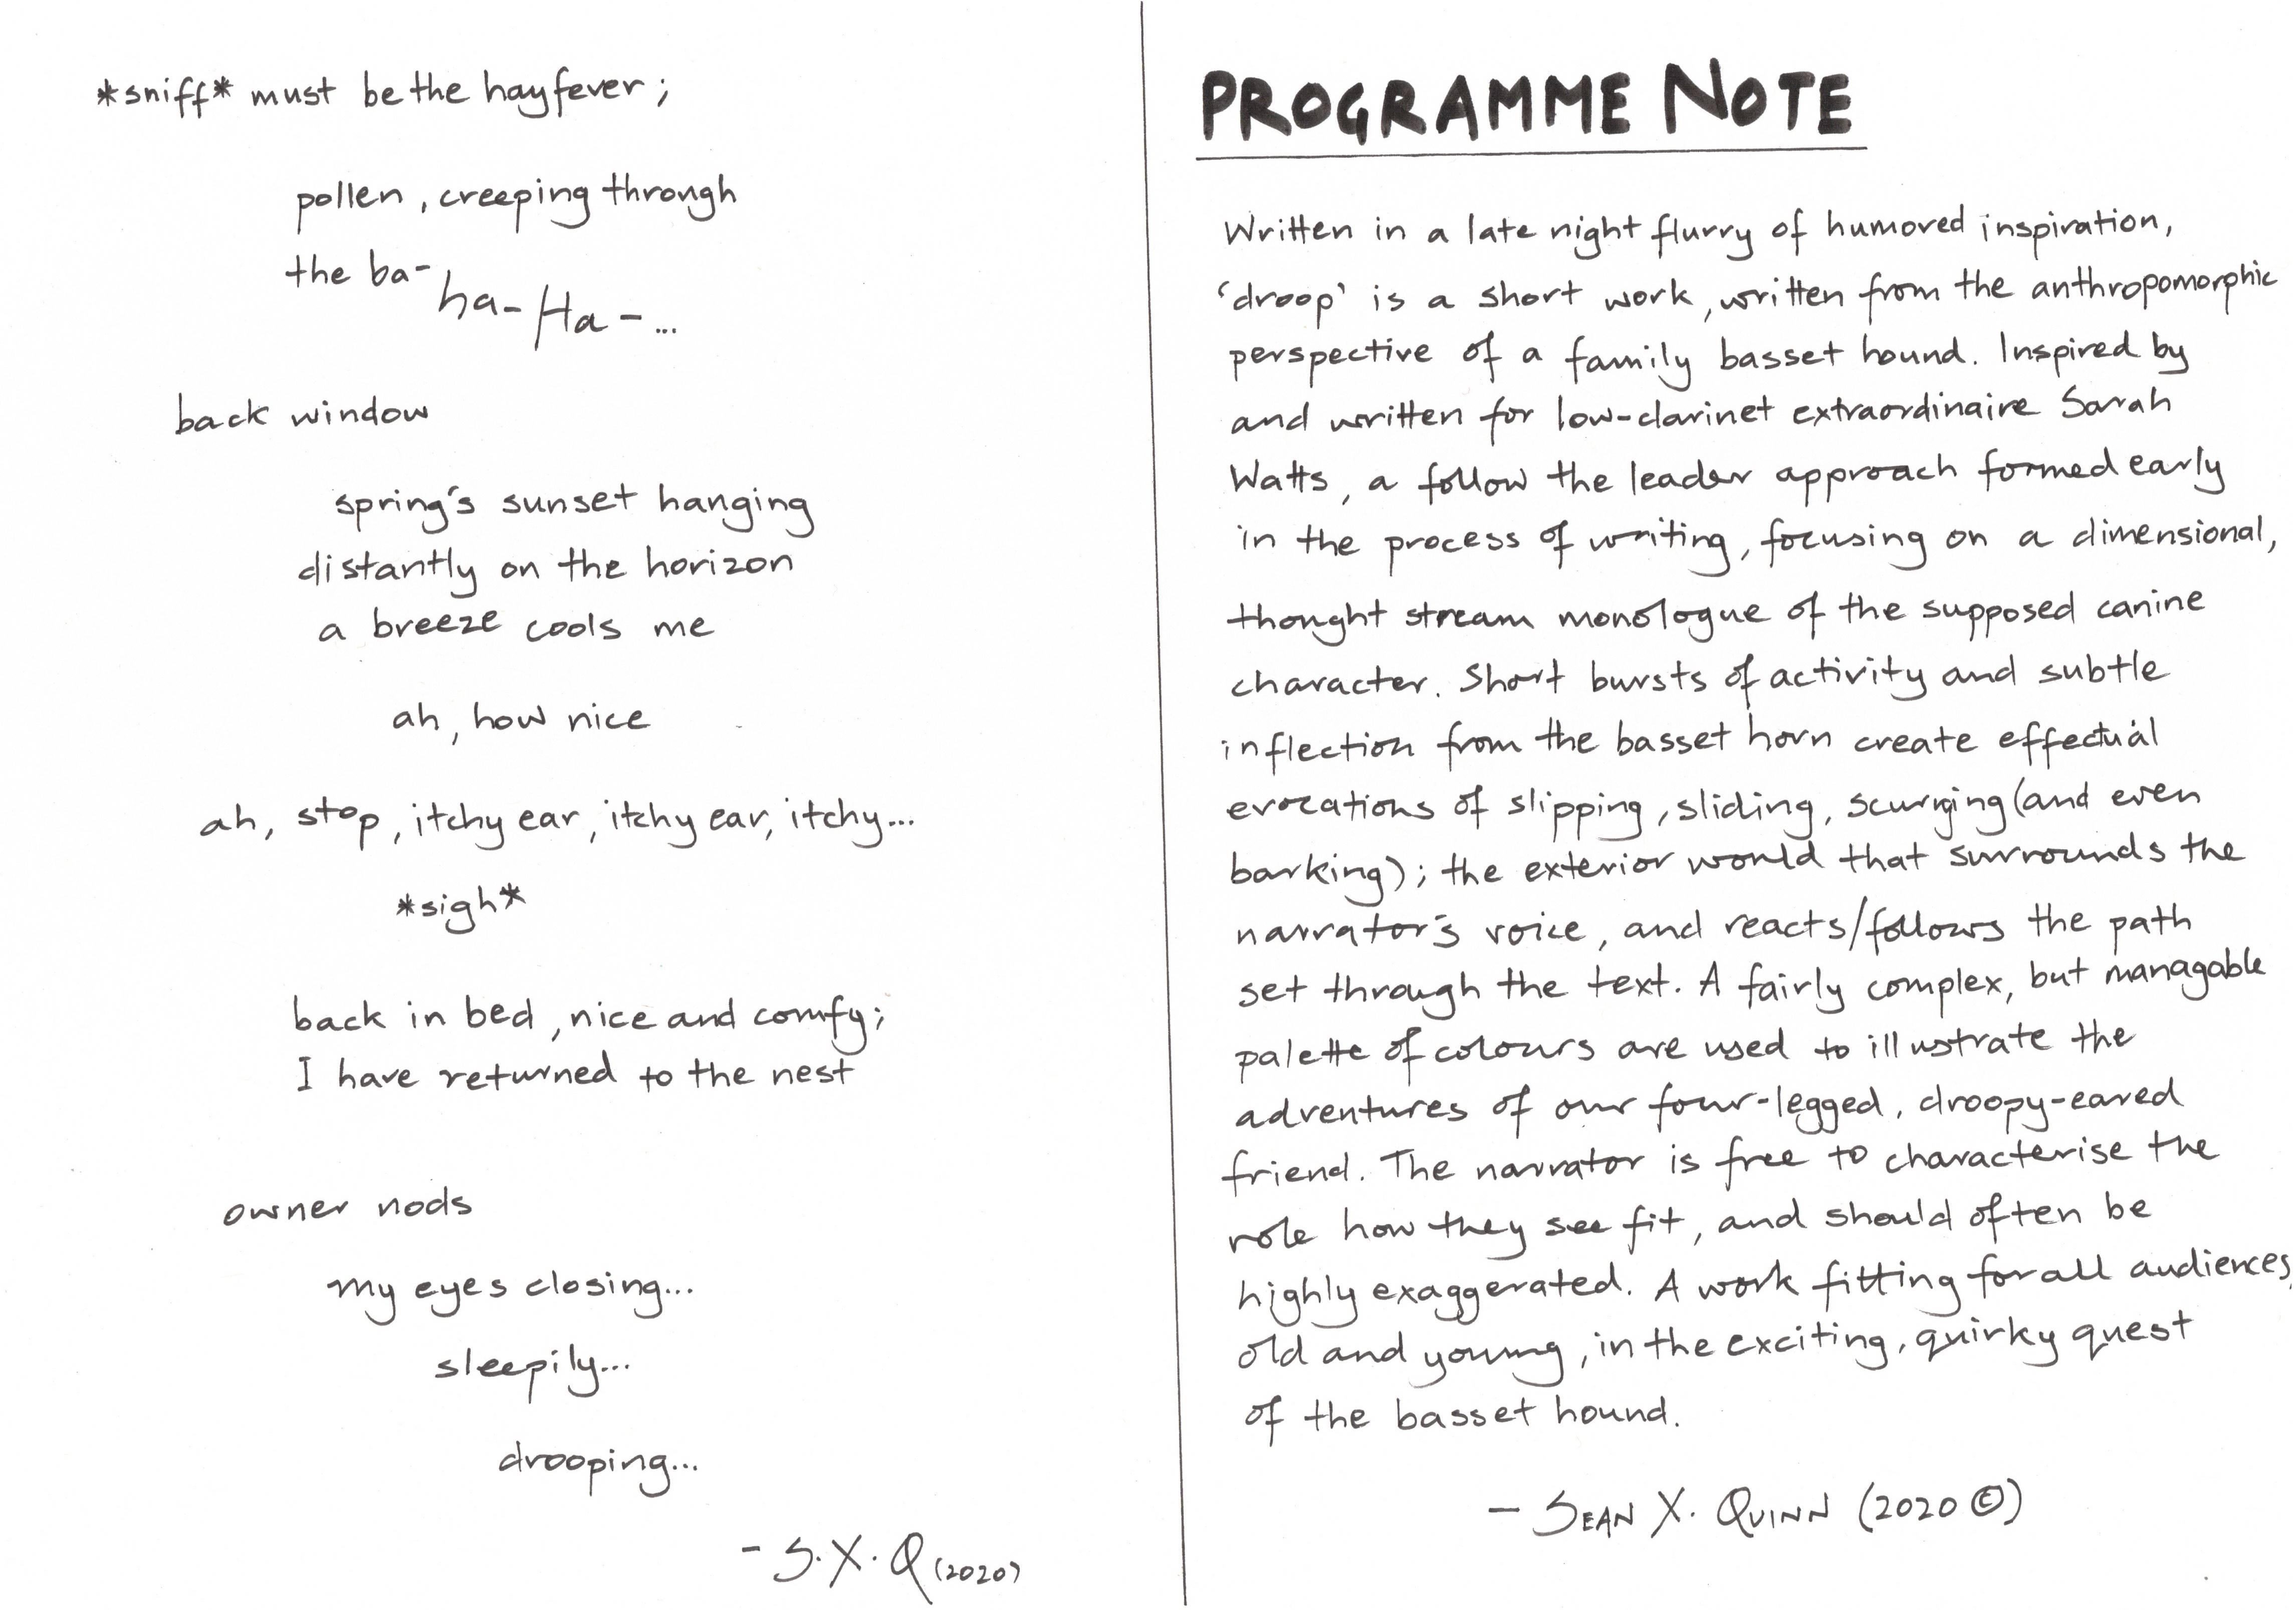 *sniff* must be the hayfever;
pollen, creeping through
the ba-ha-Ha-...
back window
spring's sunset hanging
distantly on the horizon
a breeze cools me
ah, how nice
ah, stop, itchy ear, itchy ear, itchy...
*sigh*
back in bed, nice and comfy;
I have returned to the nest
owner nods
my eyes closing...
sleepily...
drooping...
- S.X.Q (2020)
PROGRAMME NOTE
Written in a late night flurry of humored inspiration,
'droop' is a short work, written from the anthropomorphic
perspective of a family basset hound. Inspired by
and written for low-clarinet extraordinaire Sarah
Watts, a follow the leader approach formed early
in the process of writing, focusing on a dimensional,
thought stream monologue of the supposed canine
character. Short bursts of activity and subtle
inflection from the basset horn create effectual
evocations of slipping, sliding, scurrying (and even
barking); the exterior would that surrounds the
narrator's voice, and reacts/follows the path
set through the text. A fairly complex, but managable
palette of colours are used to illustrate the
adventures of our four-legged, droopy-eared
friend. The narrator is free to characterise the
role how they see fit, and should often be
highly exaggerated. A work fitting for all audiences,
old and young, in the exciting, quirky quest
of the basset hound.
- SEAN X. QUINN (2020 ©)